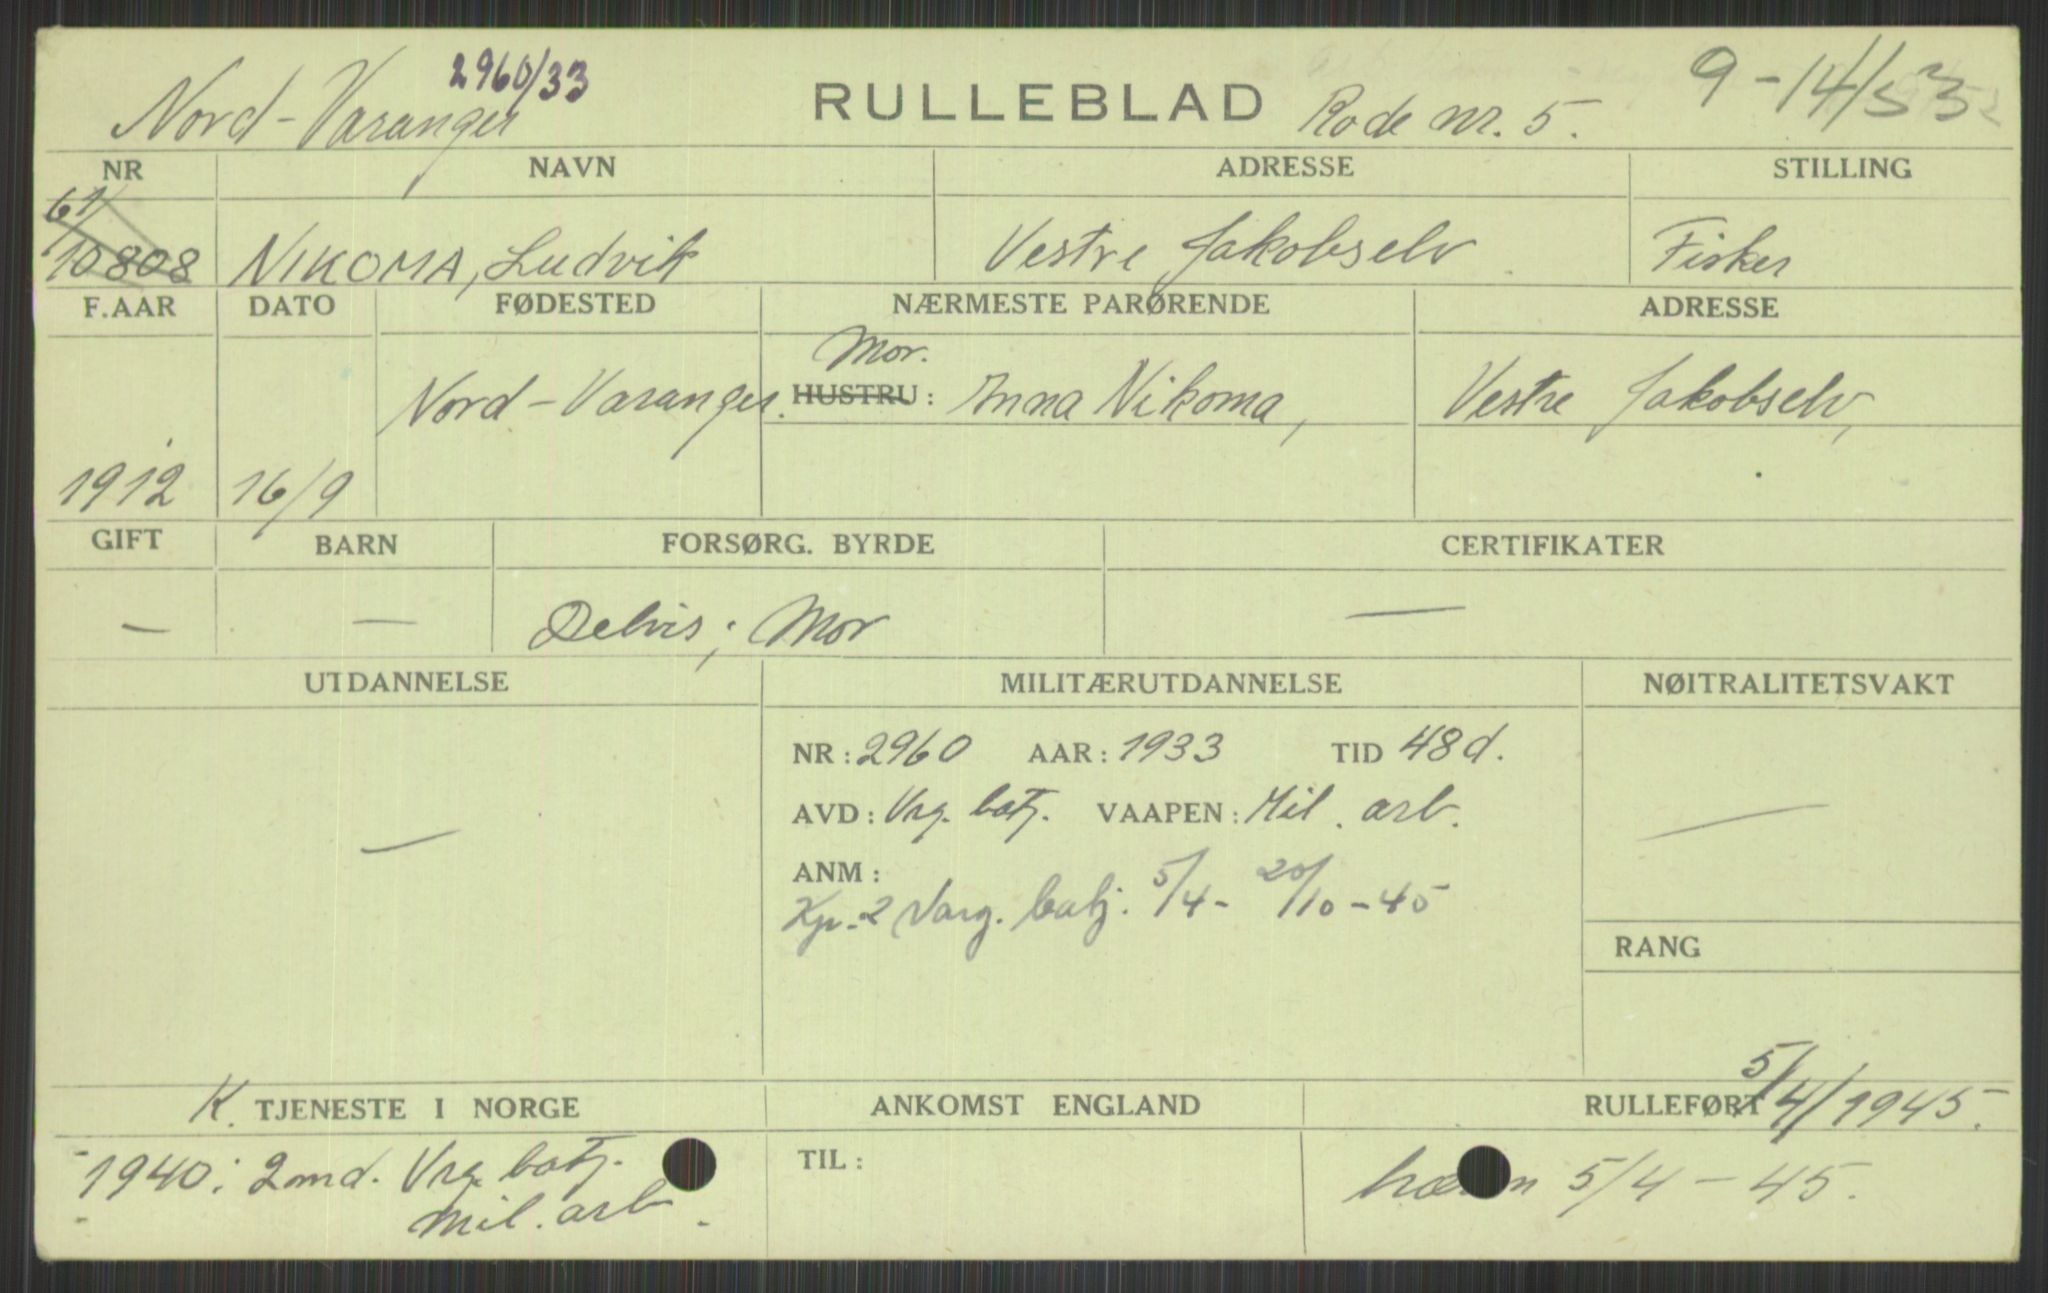 2960/33
Nord-Varanger RULLEBLAD Rode nr. 5. 9-14/53
NR NAVN ADRESSE STILLING
61/
10808 NIKOMA, Ludvik Vestre Jakobselv Fisker
F.AAR DATO FØDESTED NÆRMESTE PARØRENDE ADRESSE
Mor.
Nord-Varanger. HUSTRU: Anna Nikoma, Vestre Jakobselv,
1912 16/9
GIFT BARN FORSØRG. BYRDE CERTIFIKATER
— — Delvis; Mor —
UTDANNELSE MILITÆRUTDANNELSE NØITRALITETSVAKT
NR: 2960 AAR: 1933 TID 48 d.
— AVD: Vrg. batj. VAAPEN: Mil. arb. —
ANM:
Kp. 2 Varg. batj. 5/4 - 20/10-45
RANG
K. TJENESTE I NORGE ANKOMST ENGLAND RULLEFØRT 5/4/1945.
1940: 2 md. Vrg. batj. TIL: hæren 5/4-45.
mil. arb.